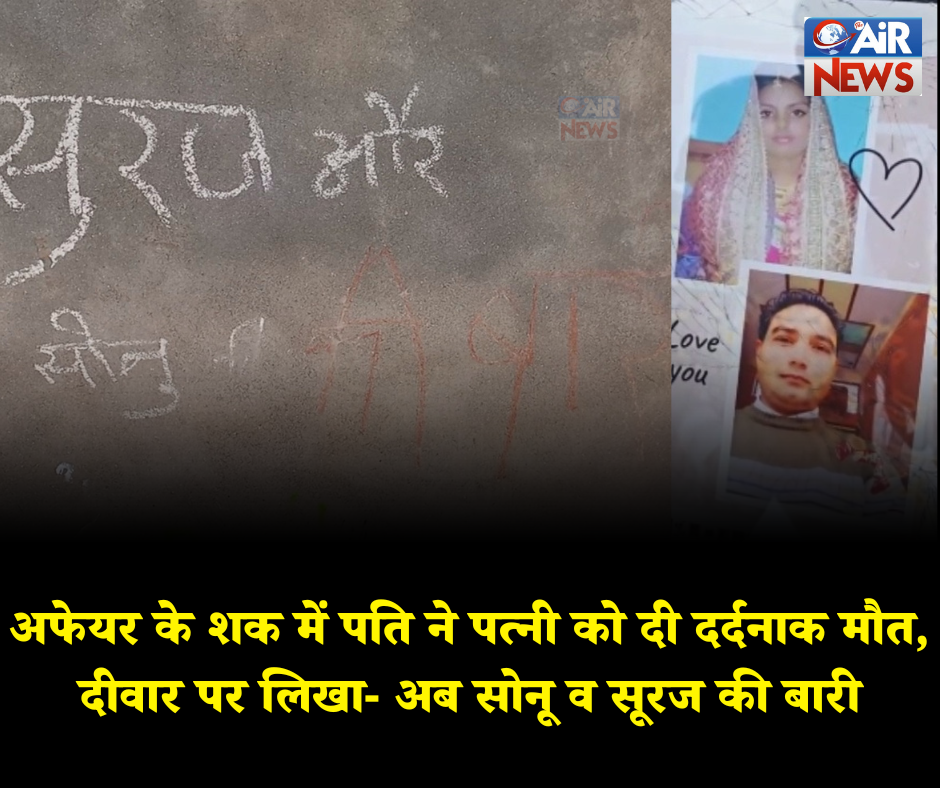 AiR
NEWS
AiR
NEWS
सुरज और
सोनु
Love
you
अफेयर के शक में पति ने पत्नी को दी दर्दनाक मौत,
दीवार पर लिखा- अब सोनू व सूरज की बारी